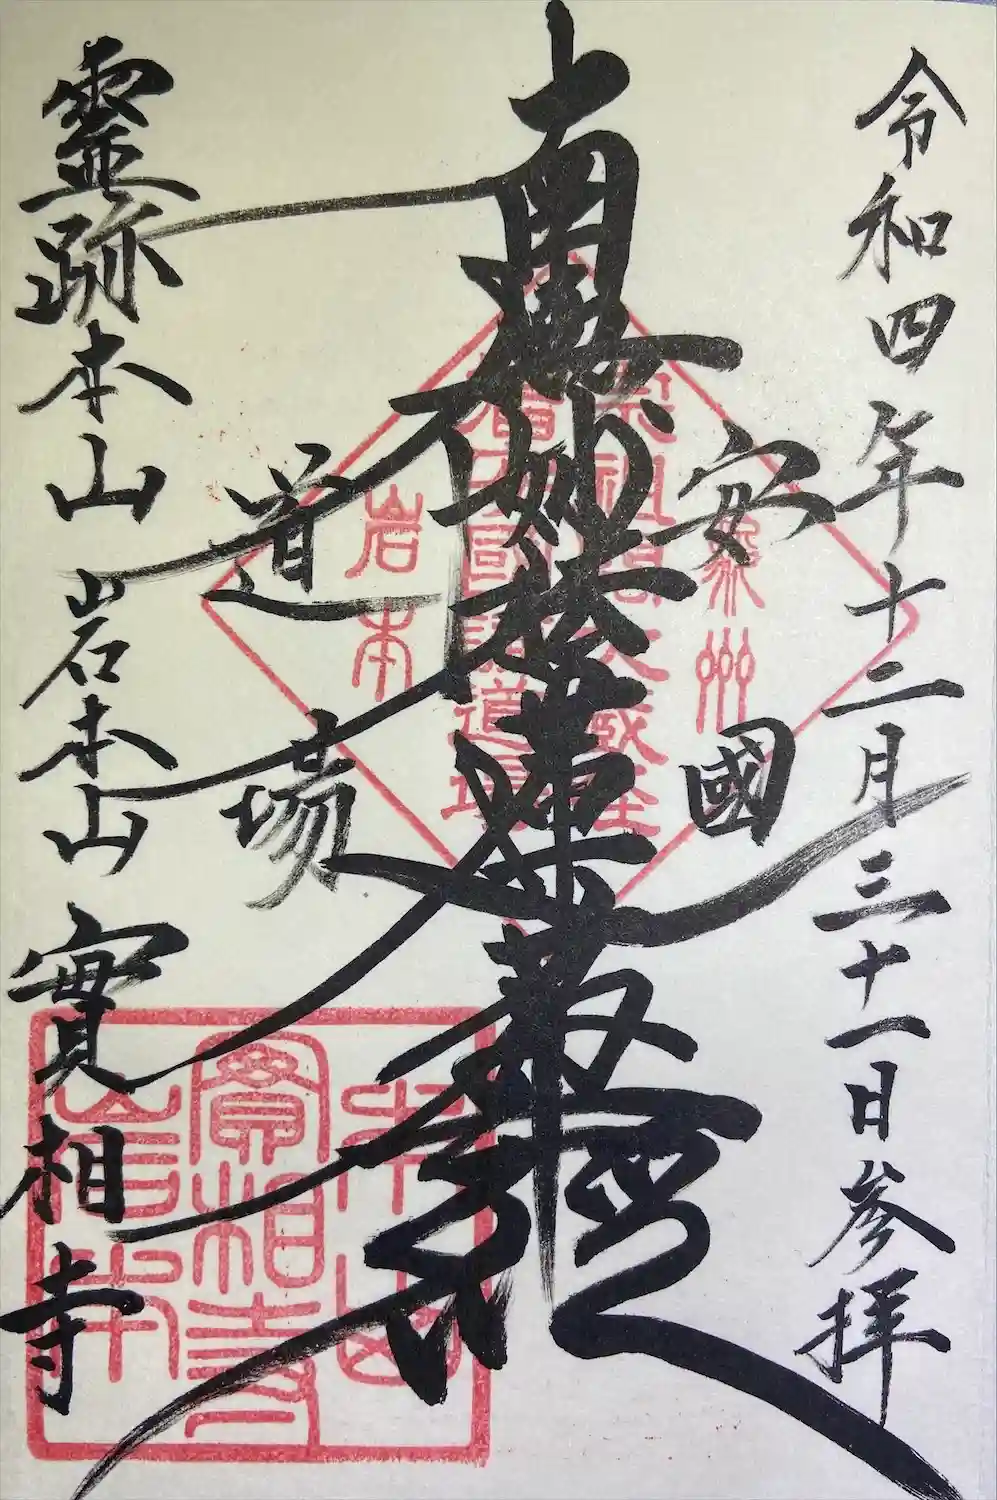 令和四年十二月三十一日参拝
安國
南無妙法蓮華経
道場
霊跡本山岩本山實相寺
宗祖
岩本
本山
實相寺
岩本